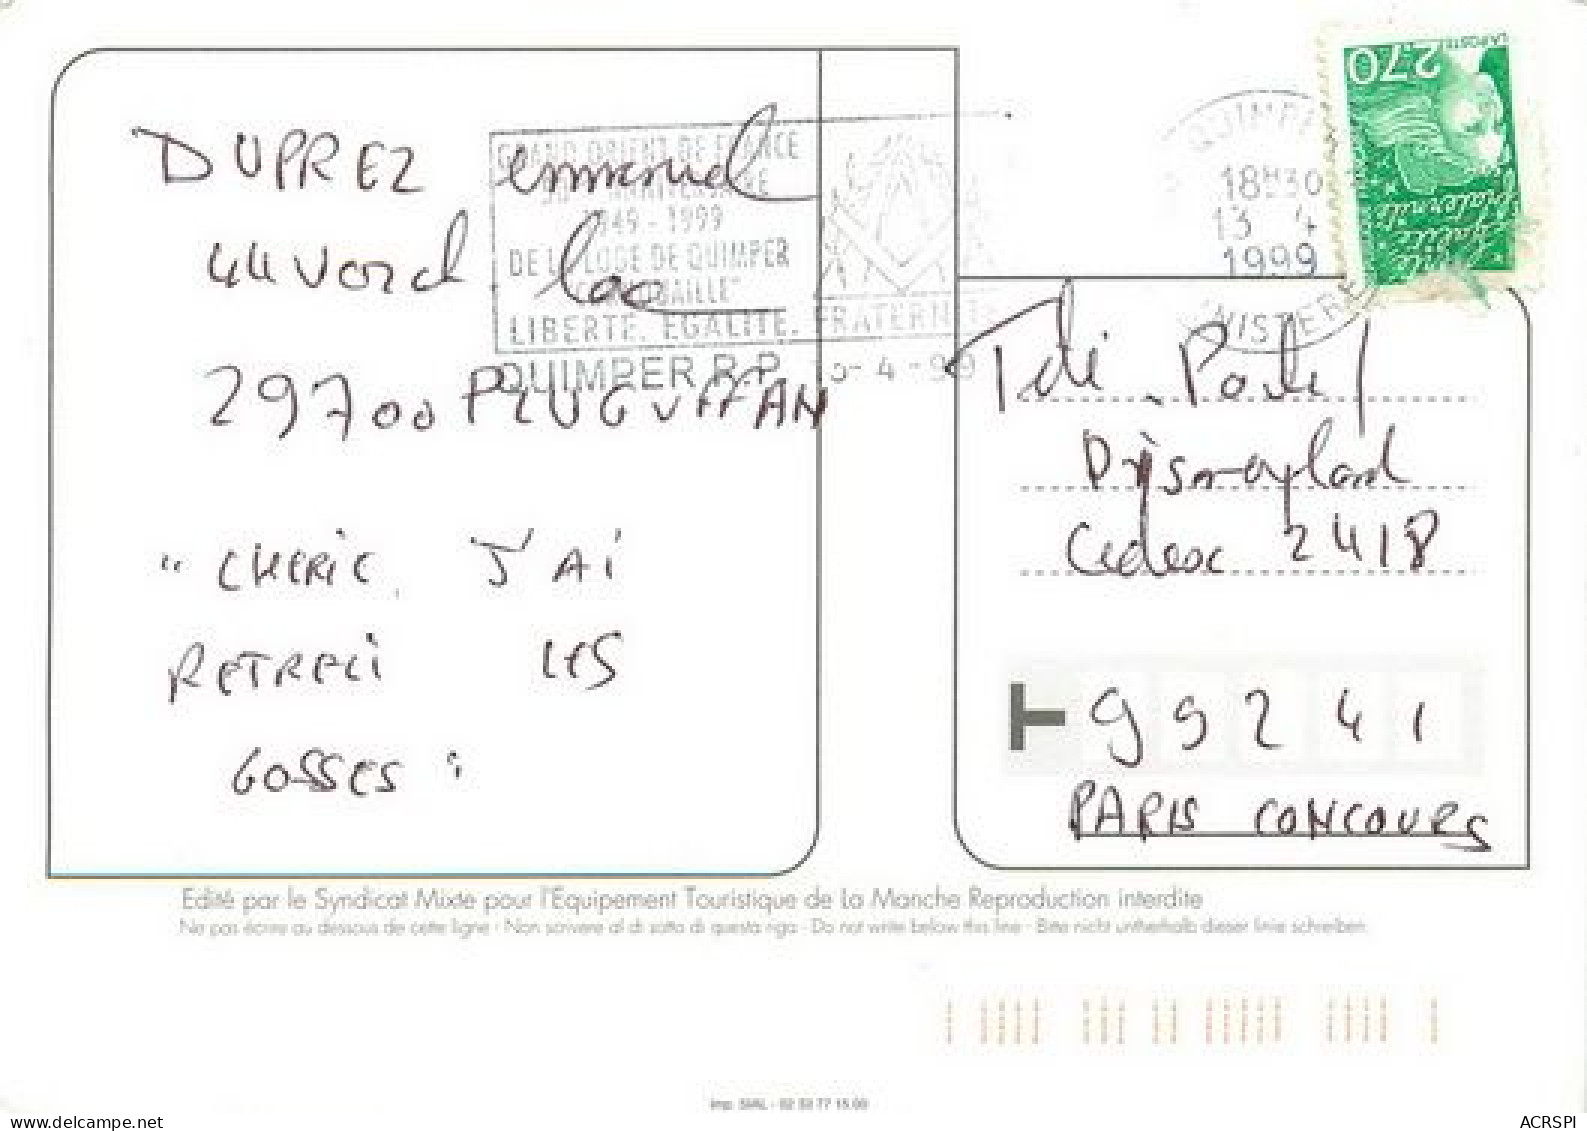 DUPREZ emmanuel
44 Vorch lao
29700 PLUGUFFAN
" CHERIE, J'AI
RETRECI LES
GOSSES "
GRAND ORIENT DE FRANCE
1949 - 1999
DE LA LOGE DE QUIMPER
LIBERTE. EGALITE. FRATERNITE
QUIMPER R.P. 13-4-99
QUIMPER
18H30
13 4
1999
FINISTERE
LA POSTE
2,70
Liberté
Égalité
Fraternité
Télé Postel
Disneyland
Cedex 2418
99241
PARIS CONCOURS
Edité par le Syndicat Mixte pour l'Equipement Touristique de La Manche Reproduction interdite
Ne pas écrire au dessous de cette ligne - Non scrivere al di sotto di questa riga - Do not write below this line - Bitte nicht unterhalb dieser linie schreiben
Imp. SIAL - 02 33 77 15 00
www.delcampe.net
ACRSPI